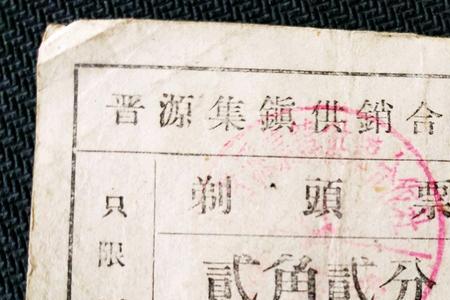 晋源集鎭供銷合
剃頭票
貳角貳分
只限